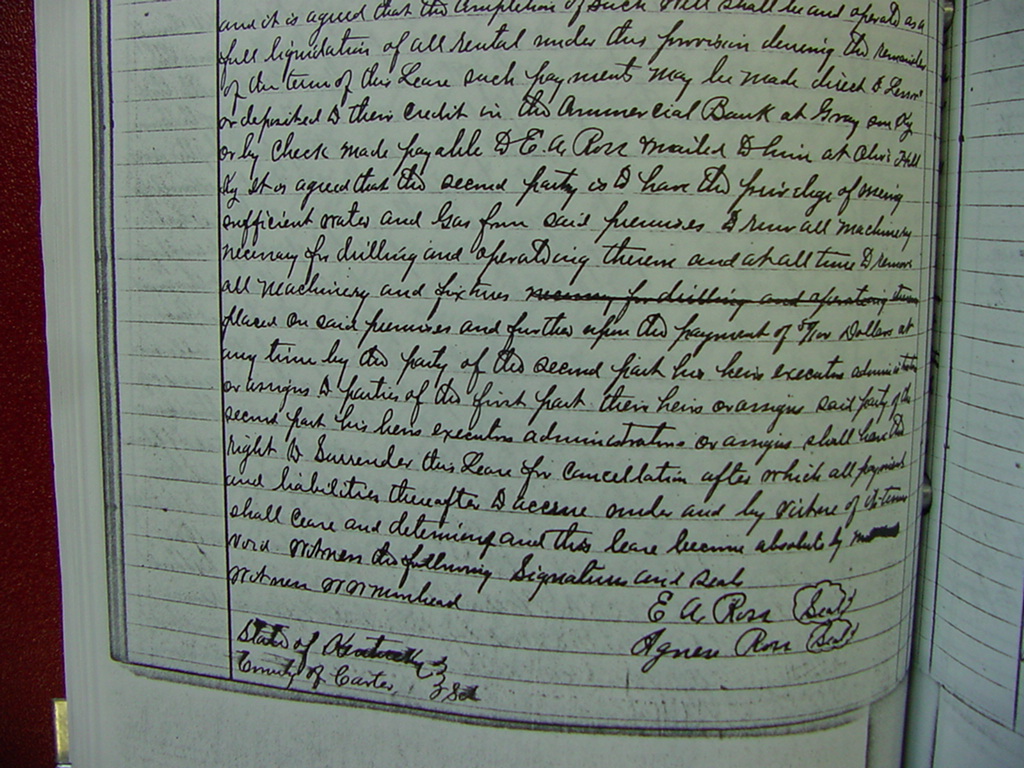 and it is agreed that the completion of such Well shall be and operate as a
full liquidation of all rental under this provision during the remainder
of the term of this Lease such payments may be made direct to Lessor
or deposited to their credit in the Commercial Bank at Grayson Ky
or by check made payable to E. A. Ross mailed to him at Olive Hill
Ky It is agreed that the second party is to have the privilege of using
sufficient water and Gas from said premises to run all machinery
necessary for drilling and operating thereon and at all time to remove
all machinery and fixtures necessary for drilling and operating
placed on said premises and further upon the payment of Dollars at
any time by the party of the second part his heirs executors administrators
or assigns to parties of the first part their heirs or assigns said party of the
second part his heirs executors administrators or assigns shall have the
right to Surrender this Lease for cancellation after which all payment
and liabilities thereafter to accrue under and by virtue of its terms
shall cease and determine and this lease become absolutely
void Witness the following Signatures and seals
Witness
E A Ross (Seal)
Agness Ross (Seal)
State of Kentucky }
County of Carter } Sct